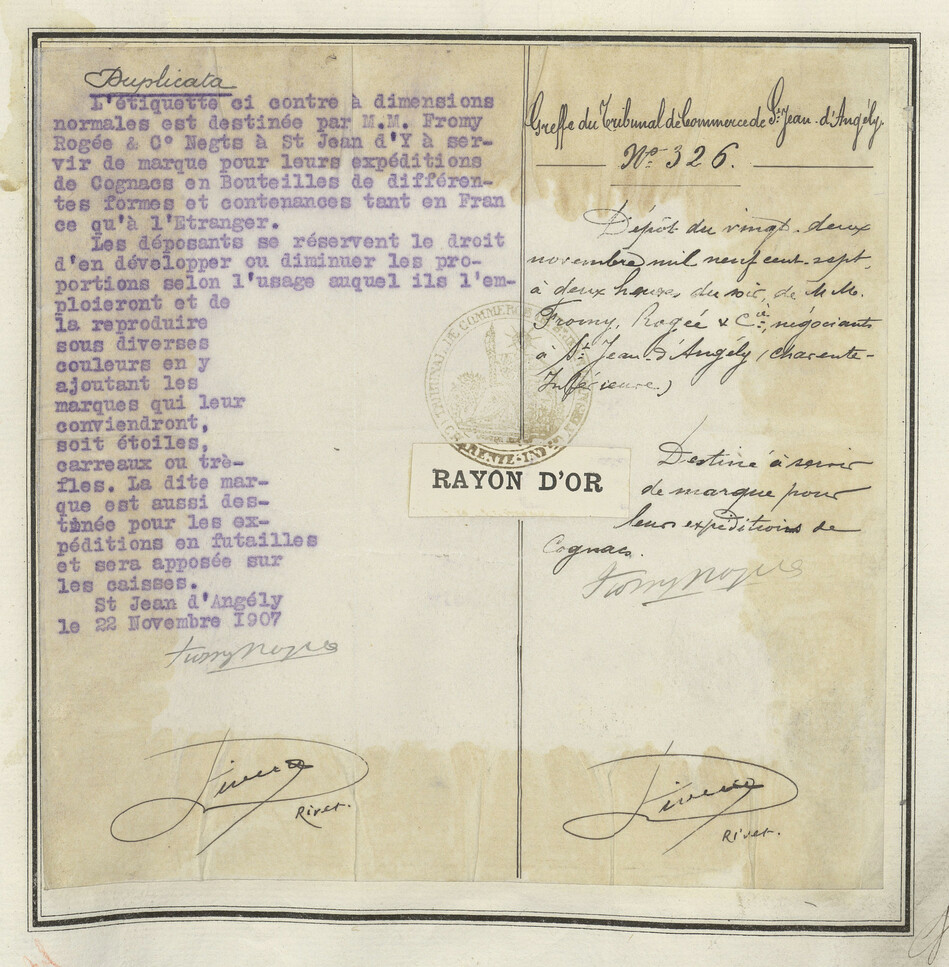 Duplicata
L'étiquette ci contre à dimensions
normales est destinée par M.M. Fromy
Rogée & C° Negts à St Jean d'Y à ser-
vir de marque pour leurs expéditions
de Cognacs en Bouteilles de différen-
tes formes et contenances tant en Fran
ce qu'à l'Etranger.
Les déposants se réservent le droit
d'en développer ou diminuer les pro-
portions selon l'usage auquel ils l'em-
ploieront et de
la reproduire
sous diverses
couleurs en y
ajoutant les
marques qui leur
conviendront,
soit étoiles,
carreaux ou trè-
fles. La dite mar-
que est aussi des-
tinée pour les ex-
péditions en futailles
et sera apposée sur
les caisses.
St Jean d'Angély
le 22 Novembre 1907
Fromy Rogée
Rivet.
Greffe du Tribunal de Commerce de St Jean-d'Angély.
No. 326.
Dépôt du vingt-deux
novembre mil neuf cent-sept,
à deux heures du soir, de M.M.
Fromy, Rogée & Cie, négociants
à St Jean-d'Angély (Charente-
Inférieure.)
TRIBUNAL DE COMMERCE
RAYON D'OR
Destiné à servir
de marque pour
leurs expéditions de
Cognacs.
Fromy Rogée
Rivet.